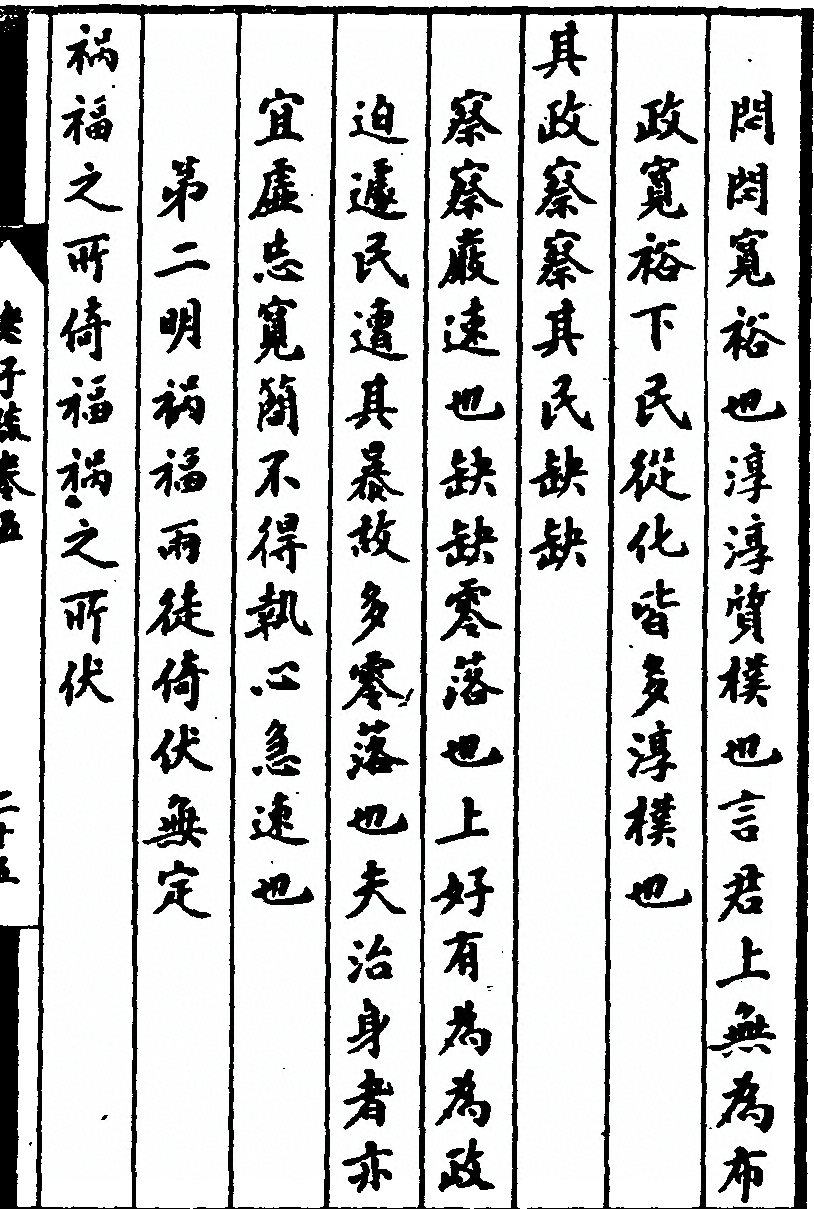 悶悶寬裕也淳淳質樸也言君上無為布
政寬裕下民從化皆多淳樸也
其政察察其民缺缺
察察嚴速也缺缺零落也上好有為為政
迫遽民遭其暴故多零落也夫治身者亦
宜虛忘寬簡不得執心急速也
第二明禍福兩徒倚伏無定
禍福之所倚福禍之所伏
老子疏卷五
二十五